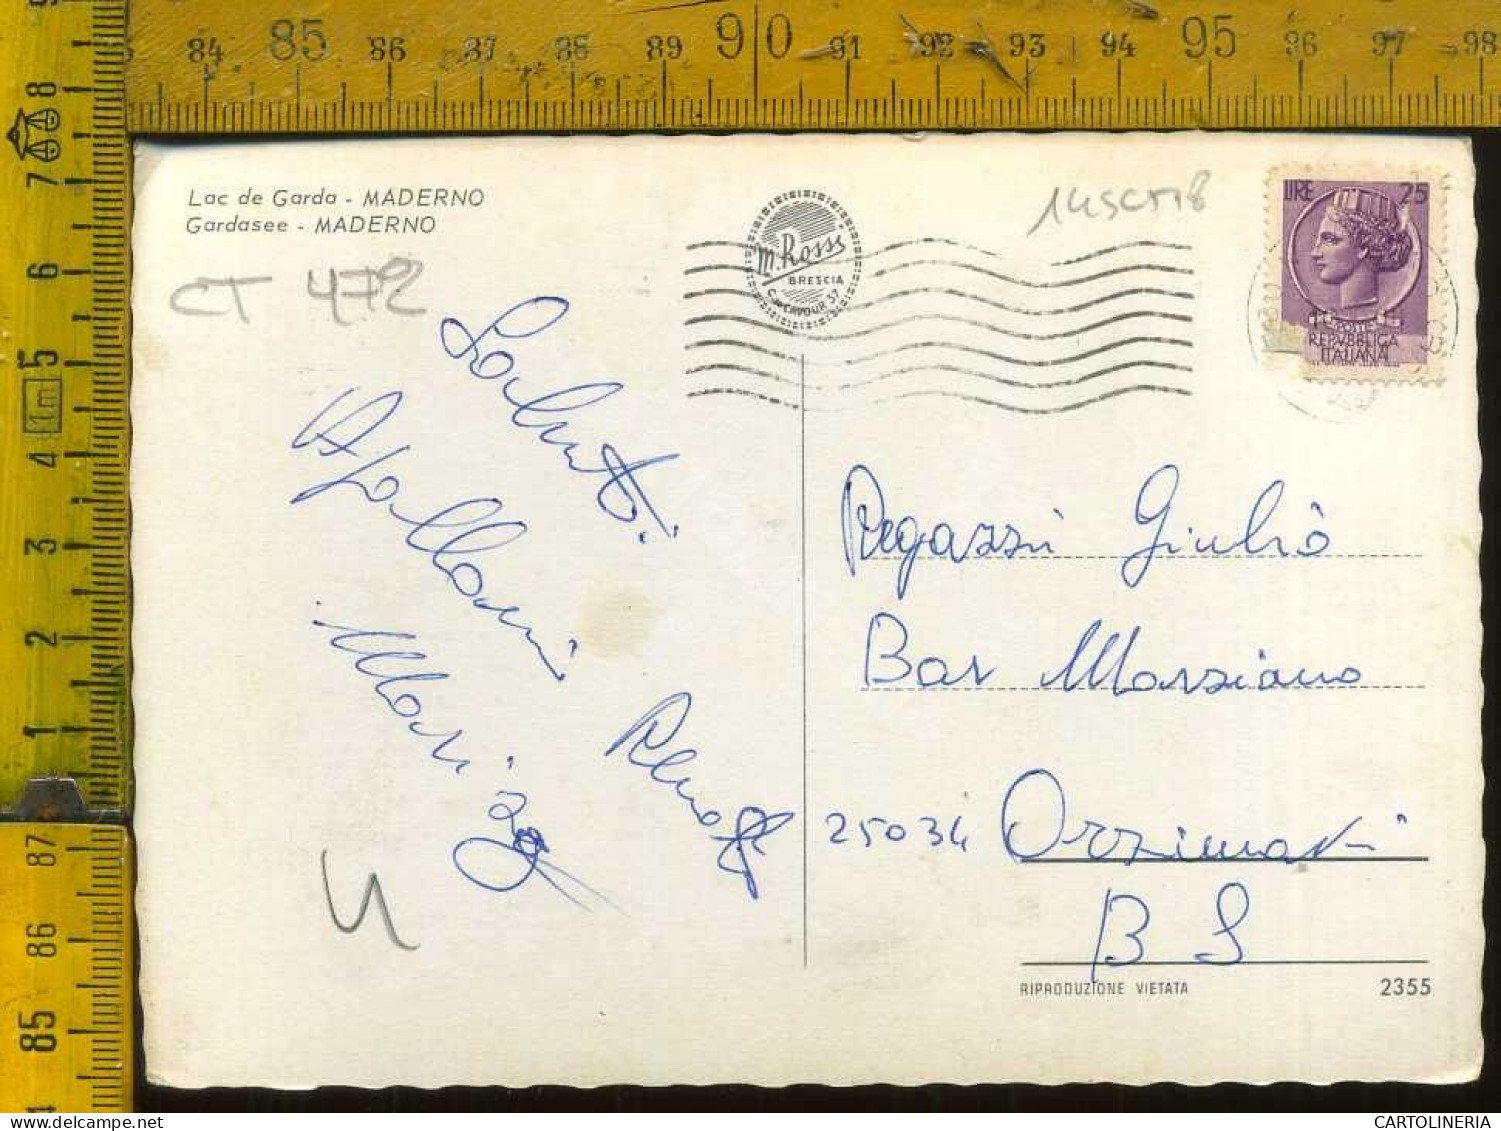 84 85 86 87 88 89 90 91 92 93 94 95 96 97 98
8
7
6
5
1m
4
3
2
1
87
86
85
Lac de Garda - MADERNO
Gardasee - MADERNO
CT 472
m. Rossi
BRESCIA
C. CAVOUR 37
LIRE 25
REPVBBLICA
ITALIANA
Saluti
Marizo
Regazzi Giulio
Bar Marziano
25034 Orzinuovi
BS
RIPRODUZIONE VIETATA 2355
CARTOLINERIA